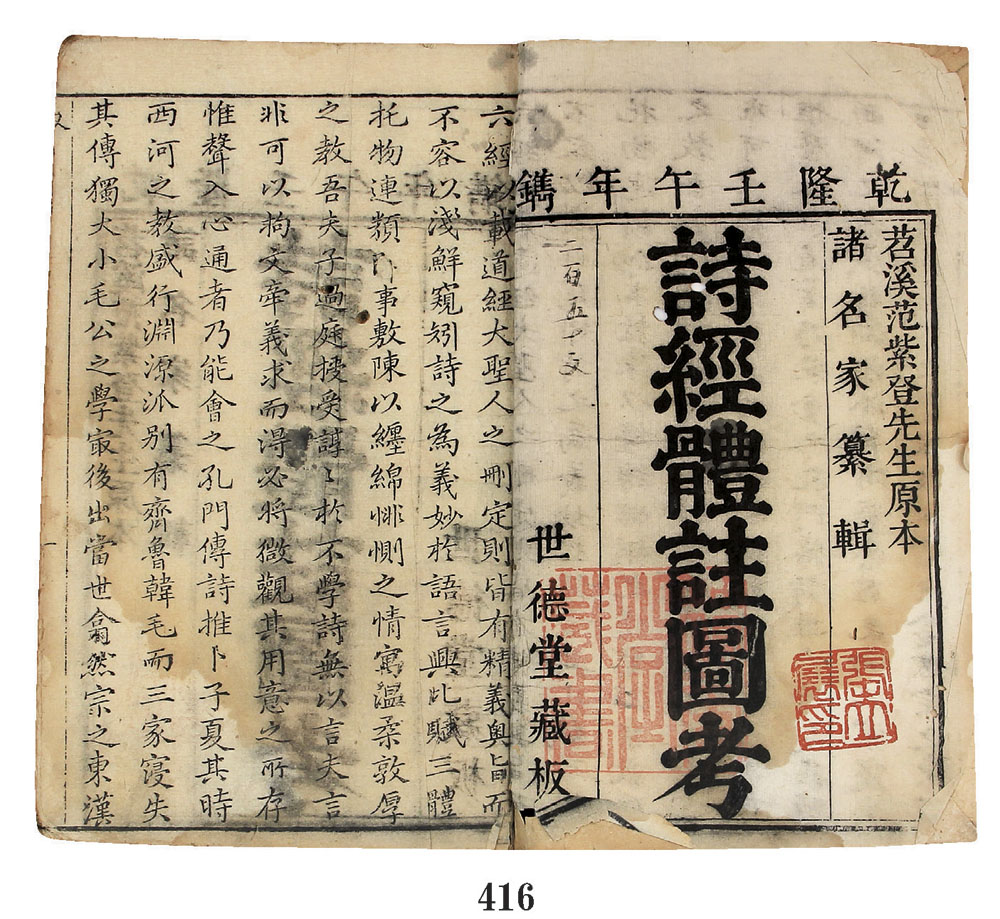 乾隆壬午年鐫
苕溪范紫登先生原本
諸名家纂輯
詩經體註圖考
世德堂藏板
六經以載道經大聖人之刪定則皆有精義奧旨而
不容以淺鮮窺矧詩之為義妙於語言興比賦三體
托物連類事敷陳以纏綿悱惻之情寓溫柔敦厚
之教吾夫子過庭授受諄〻於不學詩無以言夫言
非可以拘文牽義求而得必將微觀其用意之所存
惟聲入心通者乃能會之孔門傳詩推卜子夏其時
西河之教盛行淵源派别有齊魯韓毛而三家寖失
其傳獨大小毛公之學㝡後出當世翕然宗之東漢
416